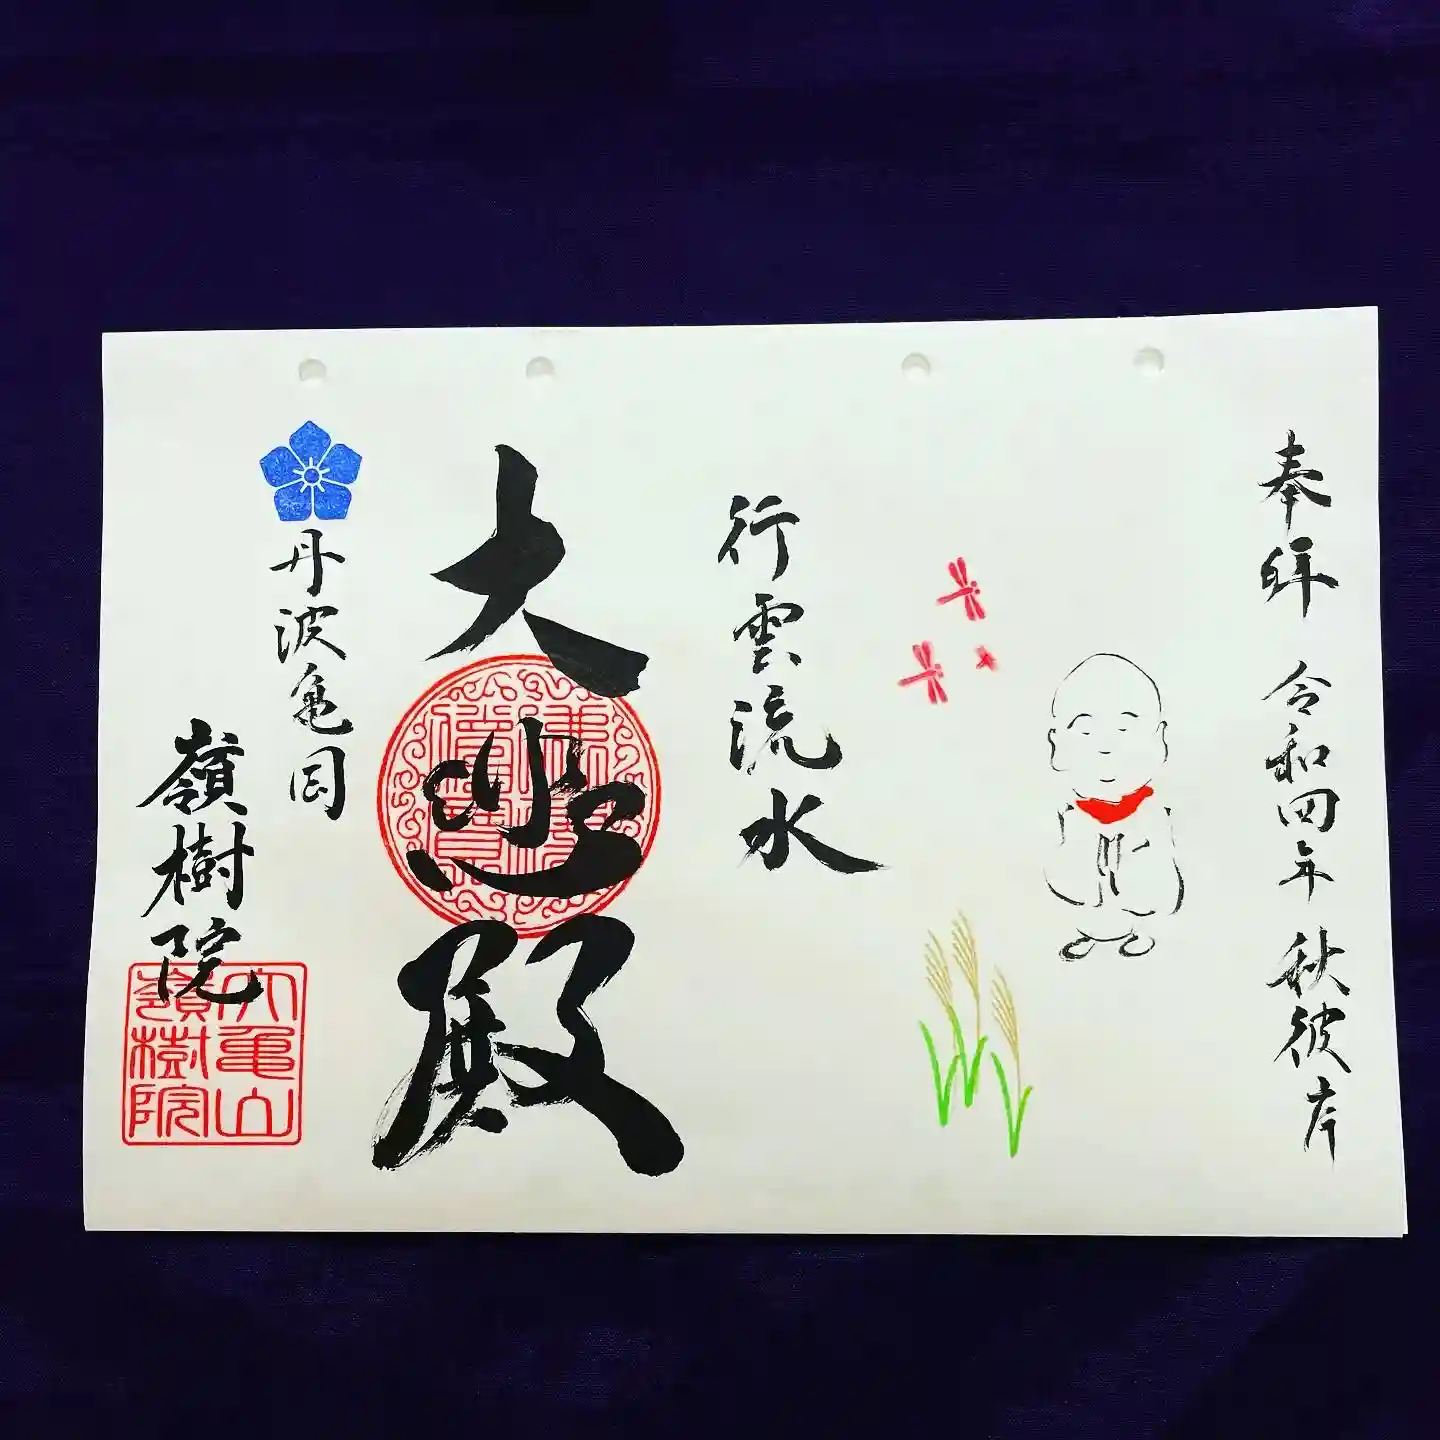 奉拝 令和四年 秋彼岸
行雲流水
大悲殿
丹波亀岡
嶺樹院
大亀山
嶺樹院